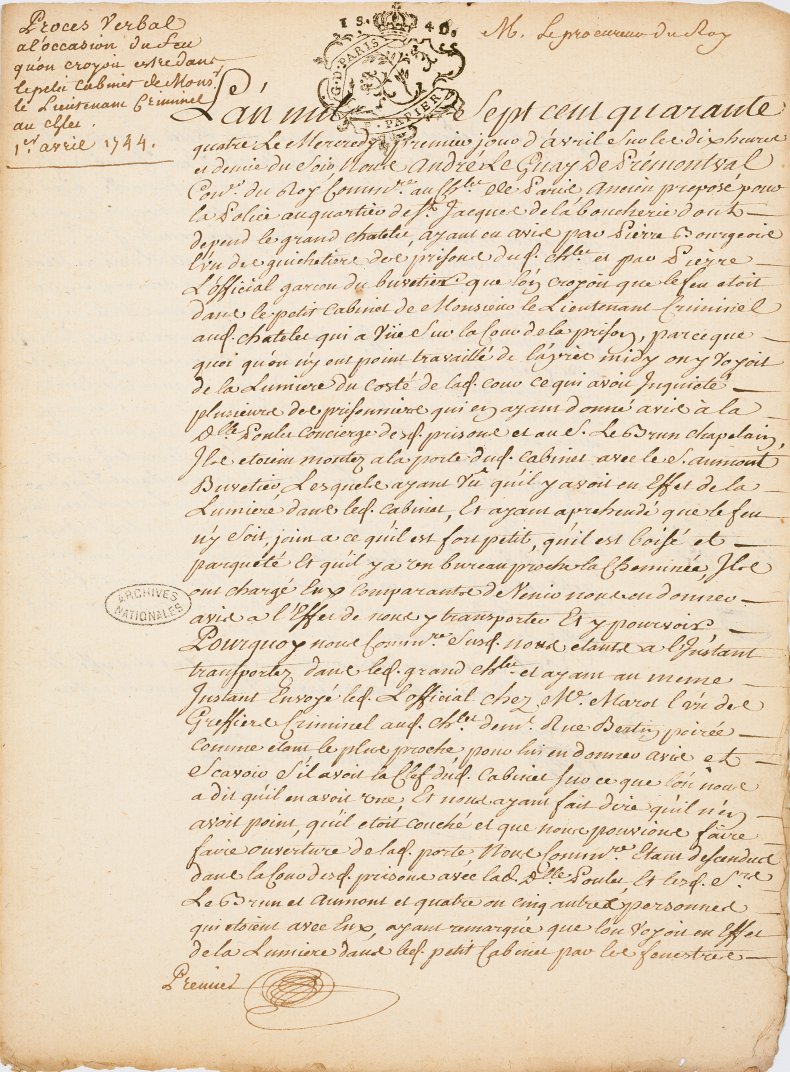 Proces Verbal
a l'occasion du feu
qu'on croyoit estre dans
le petit Cabinet de Monsr.
le Lieutenant Criminel
au chlet
1er. avril 1744.
1 S. 4 D.
G. D. PARIS
PAPIER
M. Le procureur du Roy
L'an mil Sept cent quarante
quatre Le Mercredy premier jour d'avril Sur les dix heures
et demie du Soir, Nous André Le Guay de Prémontval
Coner. du Roy Commre. au Chlet. De Paris Ancien preposé pour
la Police au quartier de St. Jacques de la boucherie dont
depend le grand chatelet, ayant eu avis par Pierre Bourgeois
L'un des guichetiers des prisons dud. Chlet. et par Pierre
L'official garçon du buvetier que l'on croyoit que le feu etoit
dans le petit Cabinet de Monsieur le Lieutenant Criminel
aud. chatelet qui a Vüe Sur la Cour de la prison, parceque
quoi qu'on n'y ont point travaillé de l'aprés midy on y Voyoit
de la Lumiere du costé de lad. cour ce qui avoit Inquieté
plusieurs des prisonniers qui en ayant donné avis à la
Dlle. Poulet Concierge desd. prisons et au S. Le Brun chapelain,
Ils etoient montez a la porte dud. Cabinet avec le S. aumont
Buvetier, Lesquels ayant Vû qu'il y avoit en Effet de la
Lumiere dans led. Cabinet, Et ayant aprehendé que le feu
n'y Soit, joint a ce qu'il est fort petit, qu'il est boisé et
parqueté Et qu'il y a un bureau proche la Cheminée, Ils
ont chargé Eux Comparants de Venir nous en donner
avis a l'Effet de nous y transporter Et y pourvoir.
Pourquoy nous Commre. Susd. nous etants a l'Instant
transportez dans led. grand Chlet. et ayant au meme
Instant Envoyé led. L'official chez Me. Marot l'un des
Greffiers Criminel aud. Chlet. demt. Rue Bertin poirée
comme etant le plus proche pour lui en donner avis et
Scavoir S'il avoit la Clef dud. Cabinet Sur ce que l'on nous
a dit qu'il en avoit une, Et nous ayant fait dire qu'il n'en
avoit point, qu'il etoit couché et que nous pouvions faire
faire ouverture de lad. porte Nous Commre. Etant descendus
dans la Cour desd. prisons avéc lad. Dlle. Poulet, Et lesd. Srs.
Le Brun et Aumont et quatre ou cinq autres personnes
qui etoient avec Eux, ayant remarqué que l'on Voyoit en Effet
de la Lumiere dans led. petit Cabinet par les fenestres
Premier
ARCHIVES
NATIONALES